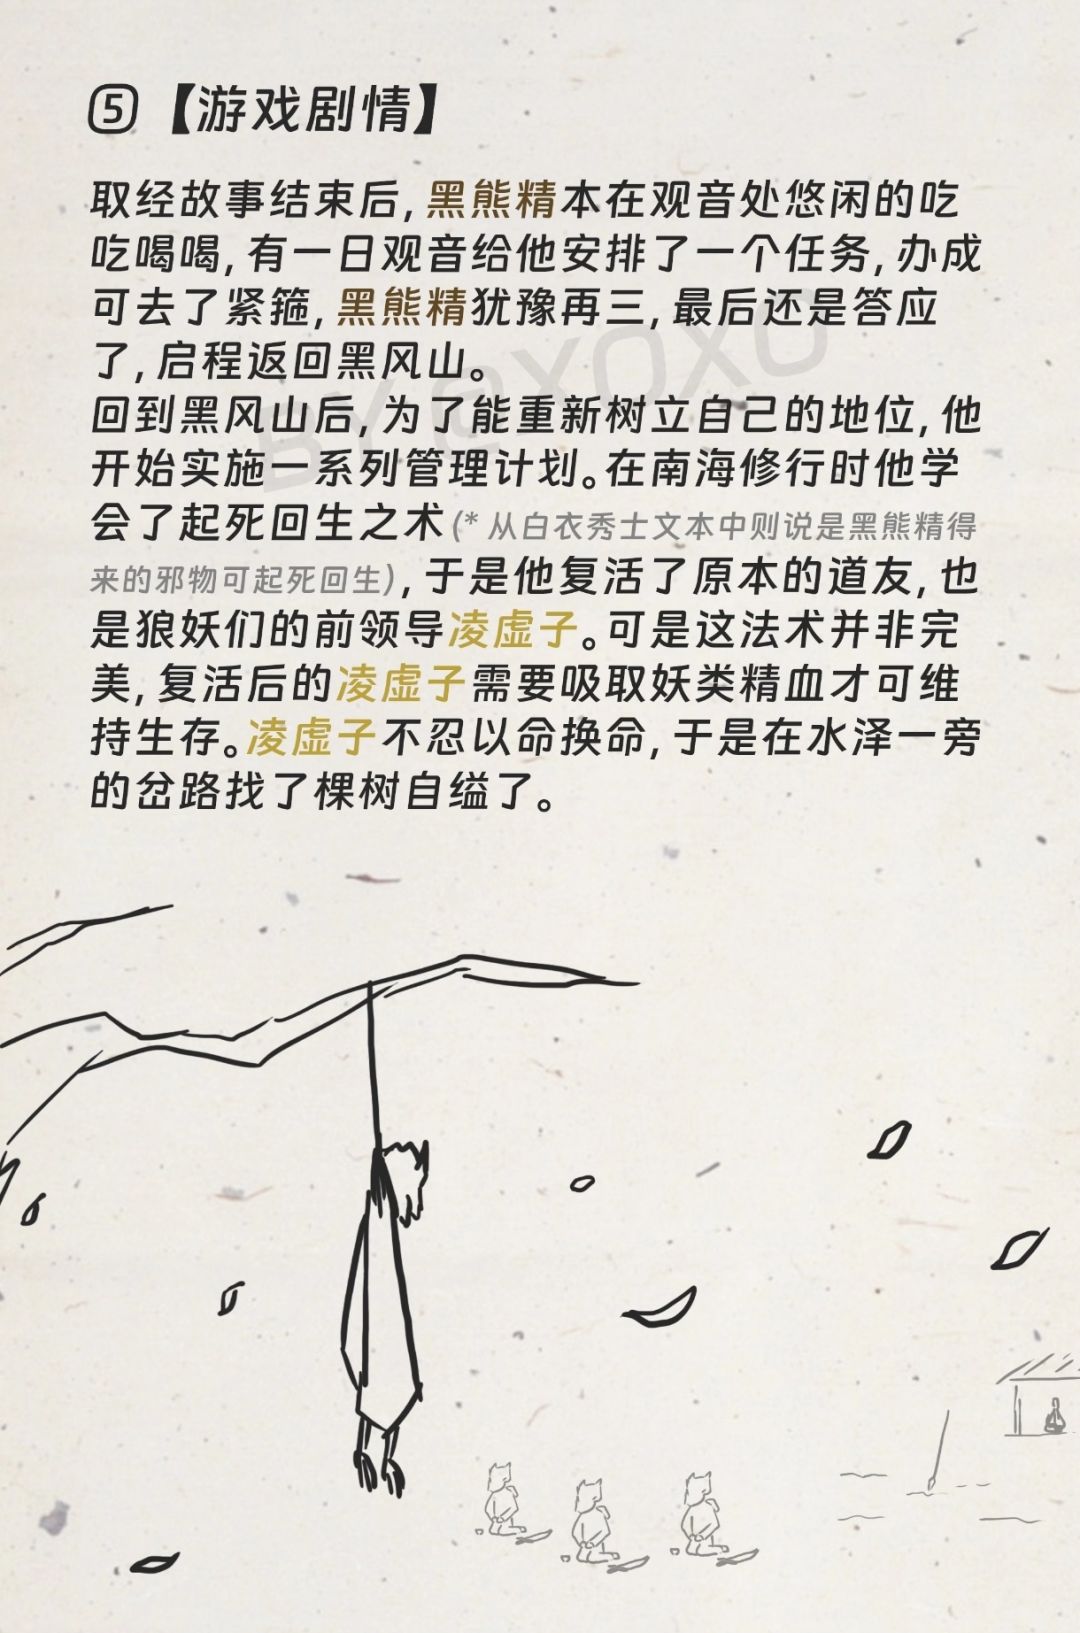 ⑤【游戏剧情】
取经故事结束后,黑熊精本在观音处悠闲的吃
吃喝喝,有一日观音给他安排了一个任务,办成
可去了紧箍,黑熊精犹豫再三,最后还是答应
了,启程返回黑风山。
回到黑风山后,为了能重新树立自己的地位,他
开始实施一系列管理计划。在南海修行时他学
会了起死回生之术(* 从白衣秀士文本中则说是黑熊精得
来的邪物可起死回生),于是他复活了原本的道友,也
是狼妖们的前领导凌虚子。可是这法术并非完
美,复活后的凌虚子需要吸取妖类精血才可维
持生存。凌虚子不忍以命换命,于是在水泽一旁
的岔路找了棵树自缢了。
BY @XOXO